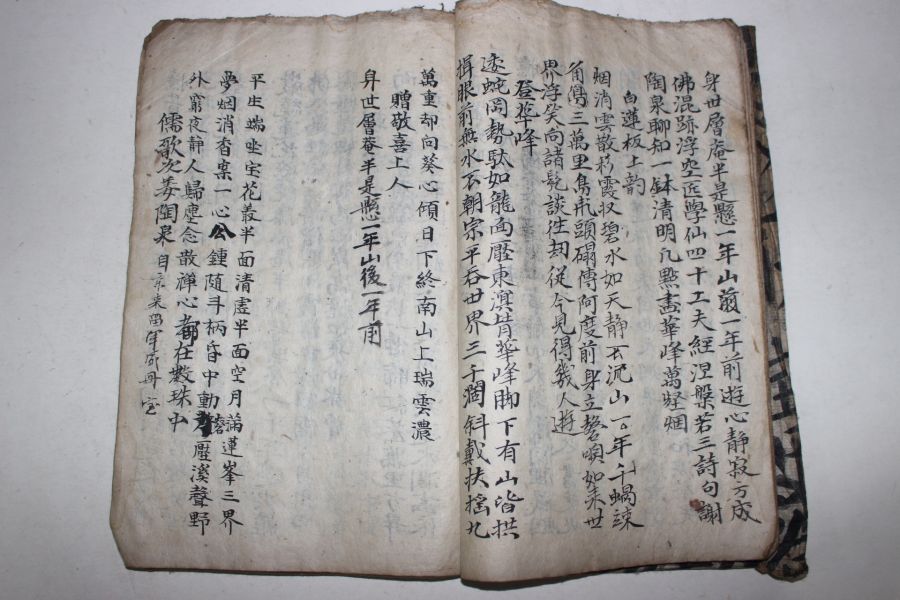 身世層庵半是懸一年山前一年前遊心靜寂方成
佛混跡浮空匠學仙四十工夫經涅槃若三詩句謝
陶泉聊知一鉢清明几點畫華峰萬壑烟
白蓮板上韵
烟消雲散彩霞収碧水如天靜不沉山一年千蝸竦
角傷三萬里鳥爪頭磻傳何度前身立磬嗅如来世
界浮笑向諸髡談徃刧從今見得幾人遊
登華峰
逶蛇岡勢駄如龍面壓東溟背華峰脚下有山皆拱
揖眼前無水不朝宗平吞世界三千濶斜戴扶搖九
萬重却向葵心傾日下終南山上瑞雲濃
贈敬喜上人
身世層庵半是懸一年山後一年前
平生端坐宝花叢半面清虛半面空月滿蓮峯三界
夢烟消香案一心公鍾随斗柄昏中動磬壓溪聲野
外窮夜静人歸塵念散禪心都在数珠中
儒歌次李陶泉